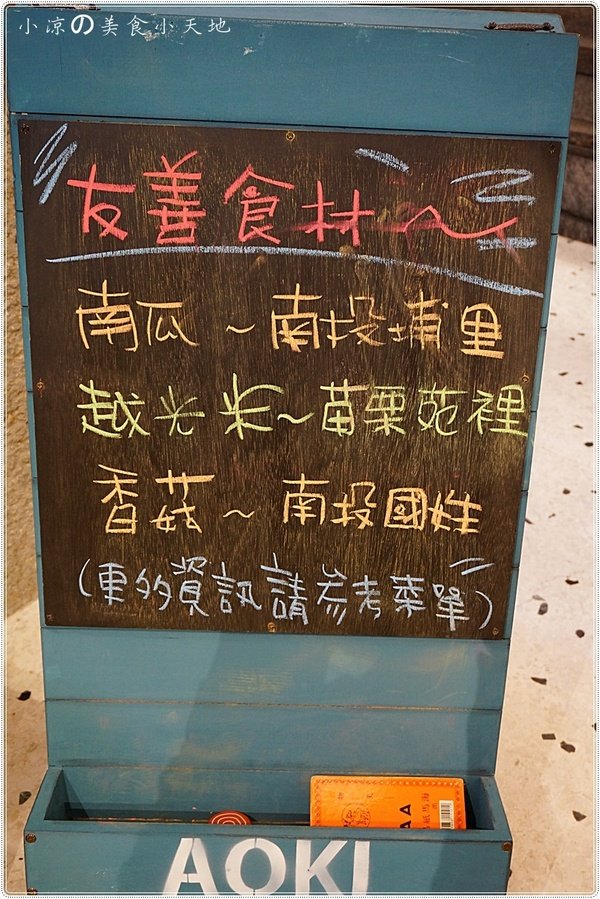 小涼の美食小天地
友善食材~
南瓜~南投埔里
越光米~苗栗苑裡
香菇~南投國姓
(更多資訊請參考菜單)
AOKI